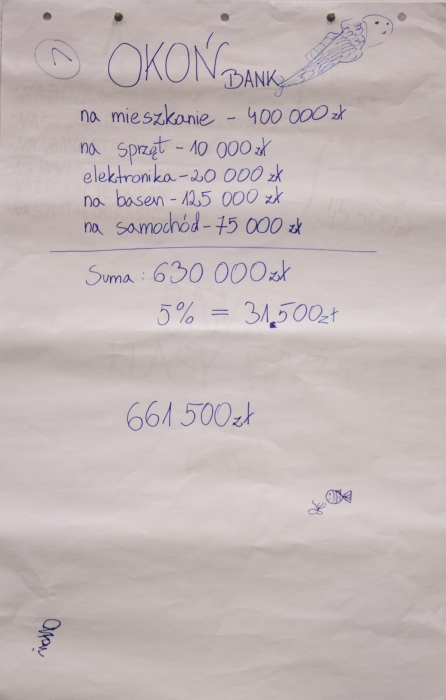 1
OKOŃ BANK
na mieszkanie - 400 000 zł
na sprzęt - 10 000 zł
elektronika - 20 000 zł
na basen - 125 000 zł
na samochód - 75 000 zł
Suma: 630 000 zł
5% = 31.500 zł
661 500 zł